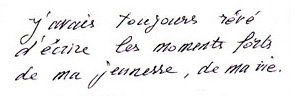 j'avais toujours rêvé
d'écrire les moments forts
de ma jeunesse, de ma vie.